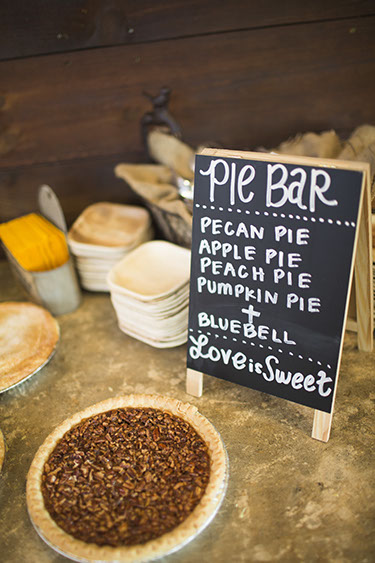 PIE BAR
PECAN PIE
APPLE PIE
PEACH PIE
PUMPKIN PIE
+
BLUEBELL
Love is Sweet